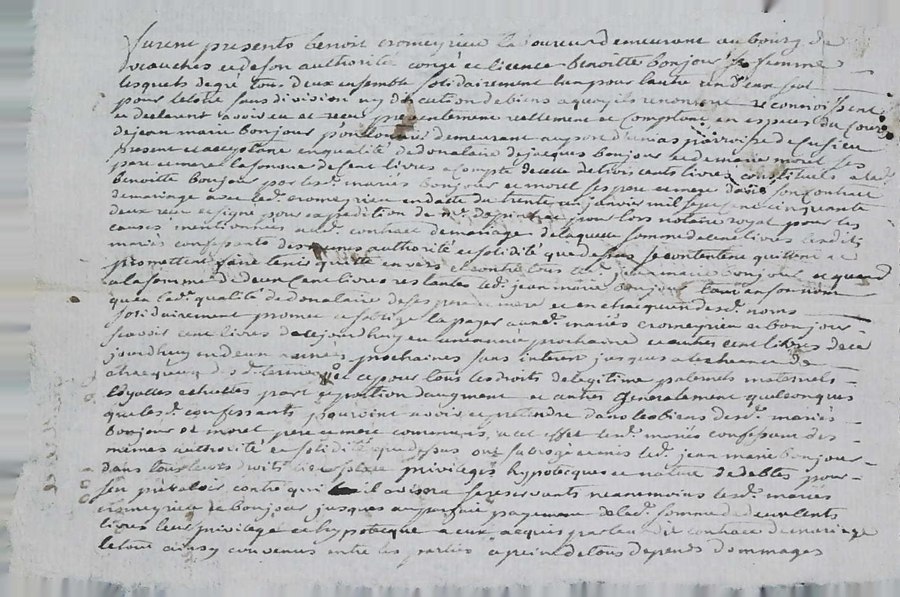 furent presents benoit cromeyrieu laboureur demeurant au bourg de
vrauches et de son authorité congé et licence benoitte bonjour sa femme
lesquels de gré tous deux ensemble solidairement l'un pour l'autre un d'eux seul
pour le tout sans division ny discution de biens a quoy ils renoncent reconnoissent
et declarent avoir eu et receu presentement reellement et comptant en especes du cours
de jean marie bonjour demeurant au parroisse de
present et acceptant en qualité de donataire de jacques bonjour et de marie morel ses
pere et mere la somme de cent livres a compte de celle de trois cents livres constitués a lad.
benoitte bonjour par lesd. mariés bonjour et morel ses pere et mere dans son contrat
de mariage avec led. cromeyrieu en datte du trente un janvier mil sept cent cinquante
deux receu et signé pour expedition de me. pour lors notaire royal pour les
causes mentionnées aud. contract de mariage de laquelle somme de cent livres lesdits
mariés confessants des memes authorité et solidité que dessus se contentent quittent et
promettent faire tenir quitte envers et contre tous led. jean marie bonjour et quand
a la somme de deux cent livres restantes led. jean marie bonjour tant en son nom
qu'en lad. qualité de donataire de ses pere et mere et en chacun desd. noms
solidairement promet et s'oblige la payer auxd. mariés cromeyrieu et bonjour
scavoir cent livres dors jourdhuy en une année prochaine et autres cent livres de ce
jourdhuy en deux années prochaines sans interet jusques a l'echeance de
chacun desd. termes et ce pour tous les droits de legitime paternels maternels
loyattes echuttes part et portion d'augment et autres generalement quelconques
que lesd. confessants pourroint avoir et pretendre dans les biens desd. mariés
bonjour et morel pere et mere communs, a cet effet lesd. mariés confessant des
memes authorité et solidité que dessus ont subrogé et mis led. jean marie bonjour
dans tous leurs droits lieu place privileges hypoteques et nature de debtes pour
s'en prevaloir contre qui il avisera se reservants neanmoins lesd. mariés
cromeyrieu et bonjour jusques au parfait payement de lad. somme de deux cents
livres leur privilege et hypoteque a eux acquis par led. contract de mariage
le tout ainsy convenus entre les parties a peine de tous depends dommages